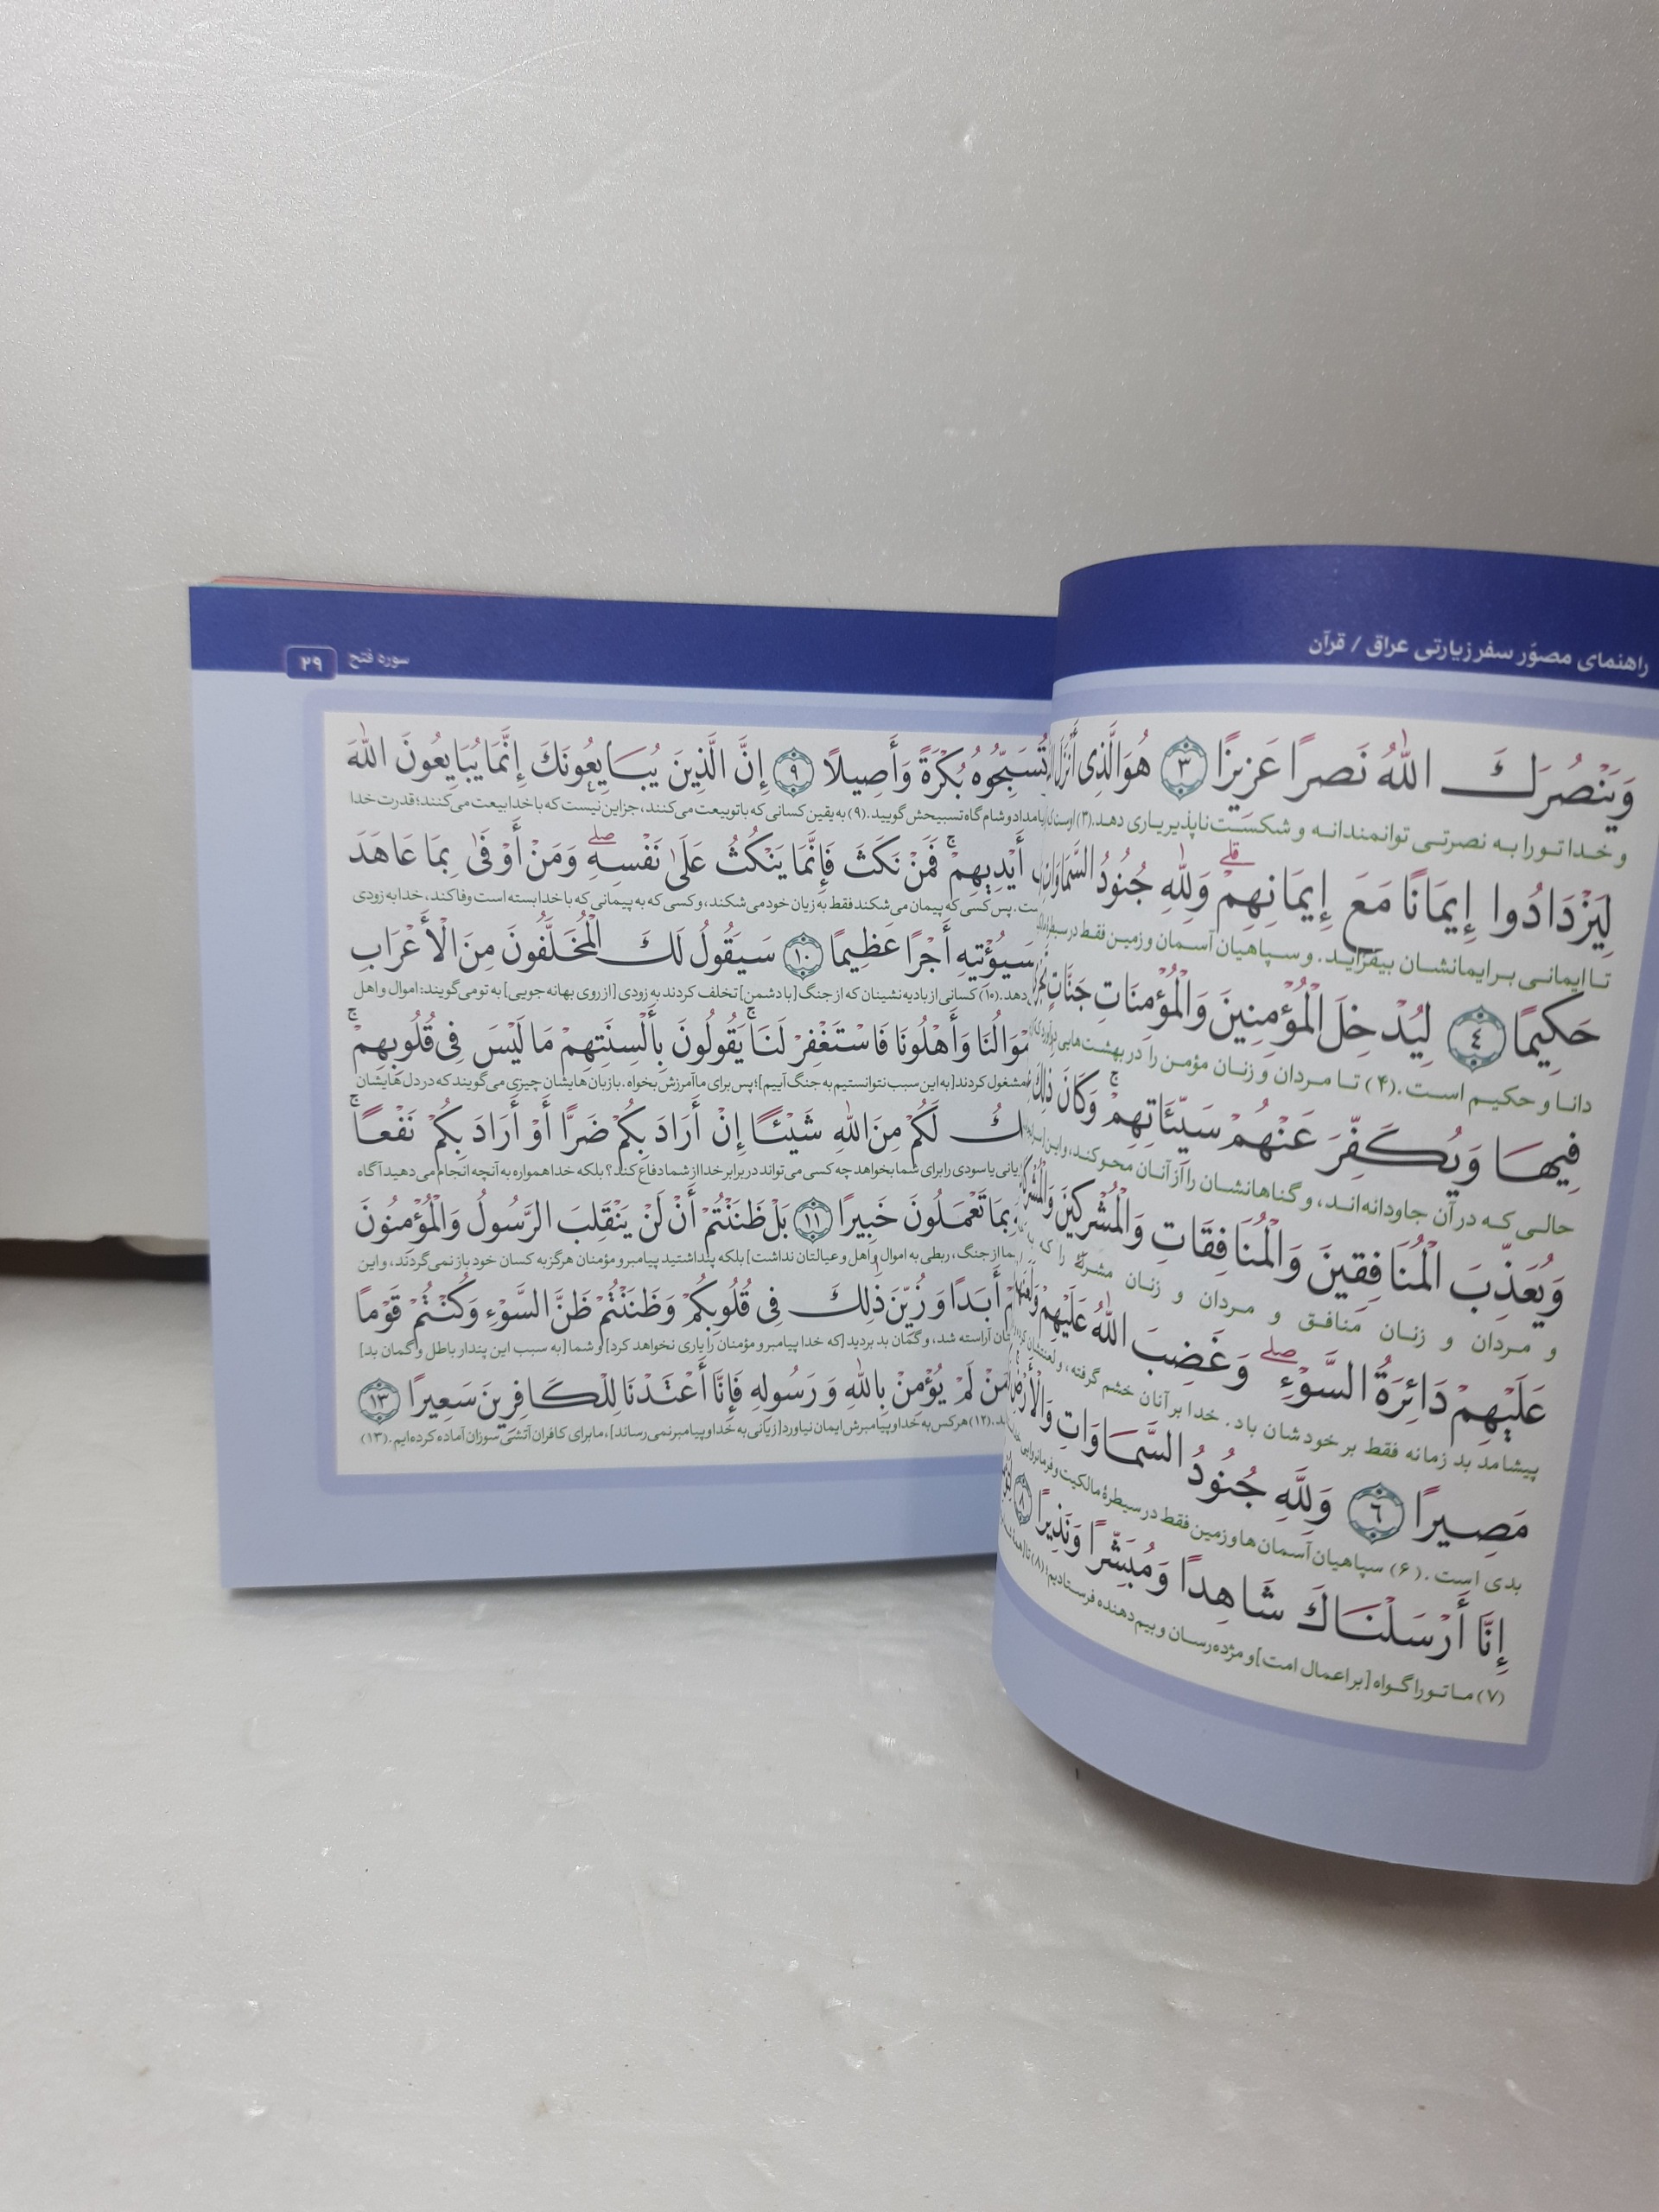 راهنمای مصوّر سفر زیارتی عراق / قرآن
وَيَنْصُرَكَ اللّٰهُ نَصْرًا عَزِيزًا ﴿٣﴾ هُوَ الَّذِي أَنْزَلَ
و خدا تو را به نصرتی توانمندانه و شکست‌ناپذیر یاری دهد. (۳) اوست که
لِيَزْدَادُوا إِيمَانًا مَعَ إِيمَانِهِمْ ۗ وَلِلّٰهِ جُنُودُ السَّمَاوَاتِ
تا ایمانی بر ایمانشان بیفزاید. و سپاهیان آسمان و زمین فقط در سیطره
حَكِيمًا ﴿٤﴾ لِيُدْخِلَ الْمُؤْمِنِينَ وَالْمُؤْمِنَاتِ جَنَّاتٍ
دانا و حکیم است. (۴) تا مردان و زنان مؤمن را در بهشت‌هایی درآورد که
فِيهَا وَيُكَفِّرَ عَنْهُمْ سَيِّئَاتِهِمْ ۚ وَكَانَ ذَلِكَ
حالی که در آن جاودانه‌اند، و گناهانشان را از آنان محو کند، و این
وَيُعَذِّبَ الْمُنَافِقِينَ وَالْمُنَافِقَاتِ وَالْمُشْرِكِينَ
و مردان و زنان منافق و مردان و زنان مشرک را که
عَلَيْهِمْ دَائِرَةُ السَّوْءِ ۖ وَغَضِبَ اللّٰهُ عَلَيْهِمْ
پیشامد بد زمانه فقط بر خودشان باد. خدا بر آنان خشم گرفته، و لعنتشان
مَصِيرًا ﴿٦﴾ وَلِلّٰهِ جُنُودُ السَّمَاوَاتِ وَالْأَرْضِ
بدی است. (۶) سپاهیان آسمان‌ها و زمین فقط در سیطرهٔ مالکیت و فرمانروایی
إِنَّا أَرْسَلْنَاكَ شَاهِدًا وَمُبَشِّرًا وَنَذِيرًا ﴿٨﴾
(۷) ما تو را گواه [بر اعمال امت] و مژده‌رسان و بیم‌دهنده فرستادیم؛ (۸) تا
سوره فتح ۲۹
تُسَبِّحُوهُ بُكْرَةً وَأَصِيلًا ﴿٩﴾ إِنَّ الَّذِينَ يُبَايِعُونَكَ إِنَّمَا يُبَايِعُونَ اللّٰهَ
بامداد و شام گاه تسبیحش گویید. (۹) به یقین کسانی که با تو بیعت می‌کنند، جز این نیست که با خدا بیعت می‌کنند؛ قدرت خدا
أَيْدِيهِمْ ۚ فَمَنْ نَكَثَ فَإِنَّمَا يَنْكُثُ عَلَىٰ نَفْسِهِ ۖ وَمَنْ أَوْفَىٰ بِمَا عَاهَدَ
پس کسی که پیمان می‌شکند فقط به زیان خود می‌شکند، و کسی که به پیمانی که با خدا بسته است وفا کند، خدا به زودی
سَيُؤْتِيهِ أَجْرًا عَظِيمًا ﴿١٠﴾ سَيَقُولُ لَكَ الْمُخَلَّفُونَ مِنَ الْأَعْرَابِ
دهد. (۱۰) کسانی از بادیه نشینان که از جنگ [با دشمن] تخلف کردند به زودی [از روی بهانه جویی] به تو می‌گویند: اموال و اهل
وَالُنَا وَأَهْلُونَا فَاسْتَغْفِرْ لَنَا ۚ يَقُولُونَ بِأَلْسِنَتِهِمْ مَا لَيْسَ فِي قُلُوبِهِمْ ۚ
مشغول کردند [به این سبب نتوانستیم به جنگ آییم]؛ پس برای ما آمرزش بخواه. با زبان‌هایشان چیزی می‌گویند که در دل‌هایشان
لَكُمْ مِنَ اللّٰهِ شَيْئًا إِنْ أَرَادَ بِكُمْ ضَرًّا أَوْ أَرَادَ بِكُمْ نَفْعًا ۚ
یا سودی را برای شما بخواهد چه کسی می‌تواند در برابر خدا از شما دفاع کند؟ بلکه خدا همواره به آنچه انجام می‌دهید آگاه
بِمَا تَعْمَلُونَ خَبِيرًا ﴿١١﴾ بَلْ ظَنَنْتُمْ أَنْ لَنْ يَنْقَلِبَ الرَّسُولُ وَالْمُؤْمِنُونَ
از جنگ، ربطی به اموال و اهل و عیالتان نداشت] بلکه پنداشتید پیامبر و مؤمنان هرگز به کسان خود باز نمی‌گردند، و این
أَبَدًا وَزُيِّنَ ذَٰلِكَ فِي قُلُوبِكُمْ وَظَنَنْتُمْ ظَنَّ السَّوْءِ وَكُنْتُمْ قَوْمًا
آراسته شد، و گمان بد بردید [که خدا پیامبر و مؤمنان را یاری نخواهد کرد] و شما [به سبب این پندار باطل و گمان بد]
مَنْ لَمْ يُؤْمِنْ بِاللّٰهِ وَرَسُولِهِ فَإِنَّا أَعْتَدْنَا لِلْكَافِرِينَ سَعِيرًا ﴿١٣﴾
(۱۲) هر کس به خدا و پیامبرش ایمان نیاورد [زیانی به خدا و پیامبر نمی رساند]، ما برای کافران آتشی سوزان آماده کرده‌ایم. (۱۳)